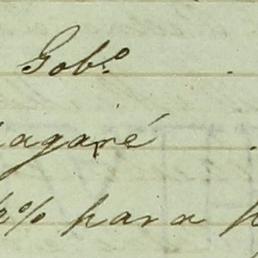 Gob.º
pagaré
% para